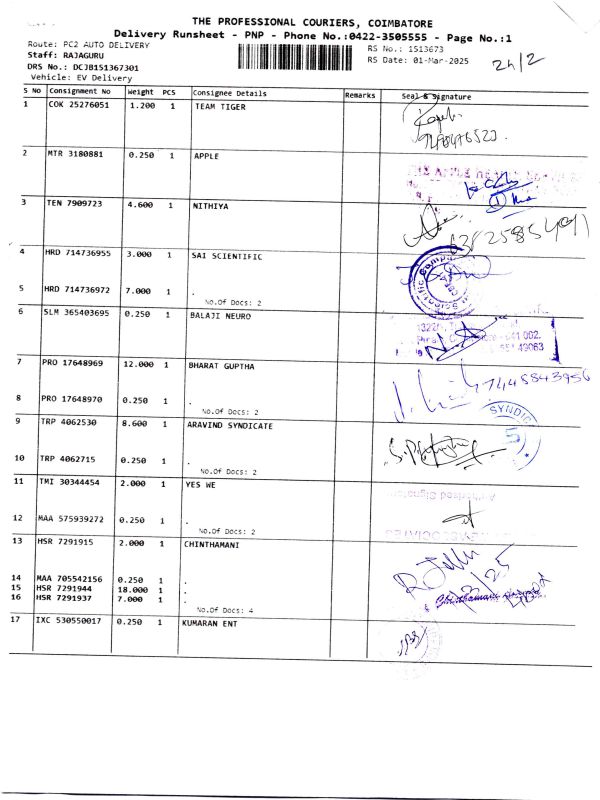 THE PROFESSIONAL COURIERS, COIMBATORE
Delivery Runsheet - PNP - Phone No.:0422-3505555 - Page No.:1
Route: PC2 AUTO DELIVERY
RS No.: 1513673
Staff: RAJAGURU
RS Date: 01-Mar-2025
DRS No.: DCJB151367301
Vehicle: EV Delivery
S No Consignment No Weight PCS Consignee Details Remarks Seal & Signature
1 COK 25276051 1.200 1 TEAM TIGER
2 MTR 3180881 0.250 1 APPLE
3 TEN 7909723 4.600 1 NITHIYA
4 HRD 714736955 3.000 1 SAI SCIENTIFIC
5 HRD 714736972 7.000 1 .
No.Of Docs: 2
6 SLM 365403695 0.250 1 BALAJI NEURO
7 PRO 17648969 12.000 1 BHARAT GUPTHA
7448843956
8 PRO 17648970 0.250 1 .
No.Of Docs: 2
SYNDIC
9 TRP 4062530 8.600 1 ARAVIND SYNDICATE
10 TRP 4062715 0.250 1 .
No.Of Docs: 2
11 TMI 30344454 2.000 1 YES WE
Authorised Signatory
12 MAA 575939272 0.250 1 .
No.Of Docs: 2
13 HSR 7291915 2.000 1 CHINTHAMANI
14 MAA 705542156 0.250 1 .
15 HSR 7291944 18.000 1 .
16 HSR 7291937 7.000 1 .
No.Of Docs: 4
17 IXC 530550017 0.250 1 KUMARAN ENT